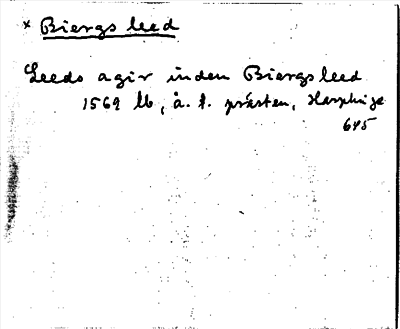 * Biergs leed
Leeds agir inden Biergs leed
1569 lb, å. f. prästen, Harplinge
645